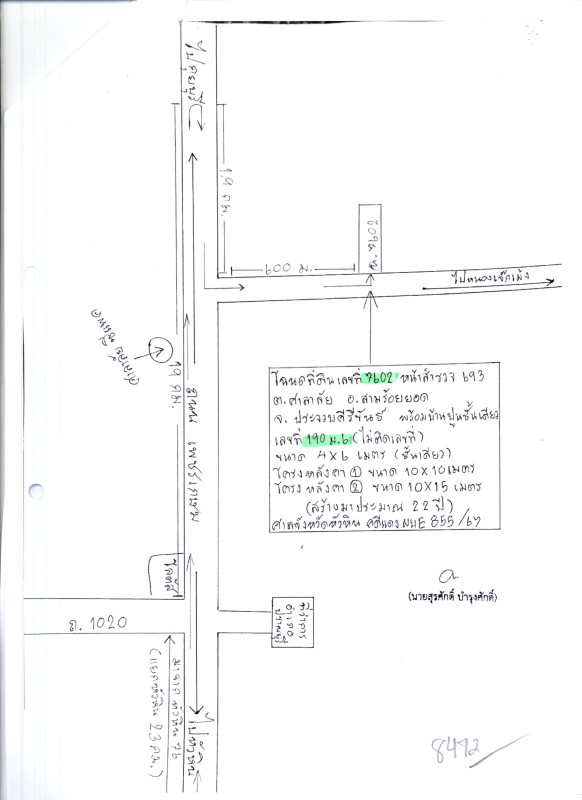 1,9 กม.
600 ม.
ไปหนองเข้เม้ง
1,9 กม.
ถนน เพชรเกษม
โฉนดที่ดิน เลขที่ 7602 หน้าสำรวจ 693
ต.ศาลาลัย อ.สามร้อยยอด
จ.ประจวบคีรีขันธ์ พร้อมบ้านปูนชั้นเดียว
เลขที่ 190 ม.6 (ไม่ติดเลขที่)
ขนาด 4x6 เมตร (ชั้นเดียว)
โครงหลังคา ① ขนาด 10x10 เมตร
โครงหลังคา ② ขนาด 10x15 เมตร
(สร้างมาประมาณ 22 ปี)
ศาลจังหวัดหัวหิน คดีแดง ผบE 855/67
(นายสุรศักดิ์ บำรุงศักดิ์)
โลตัส
ถ. 1020
ที่ว่าการ
อำเภอ
ปราณบุรี
ไปหัวหิน
8472